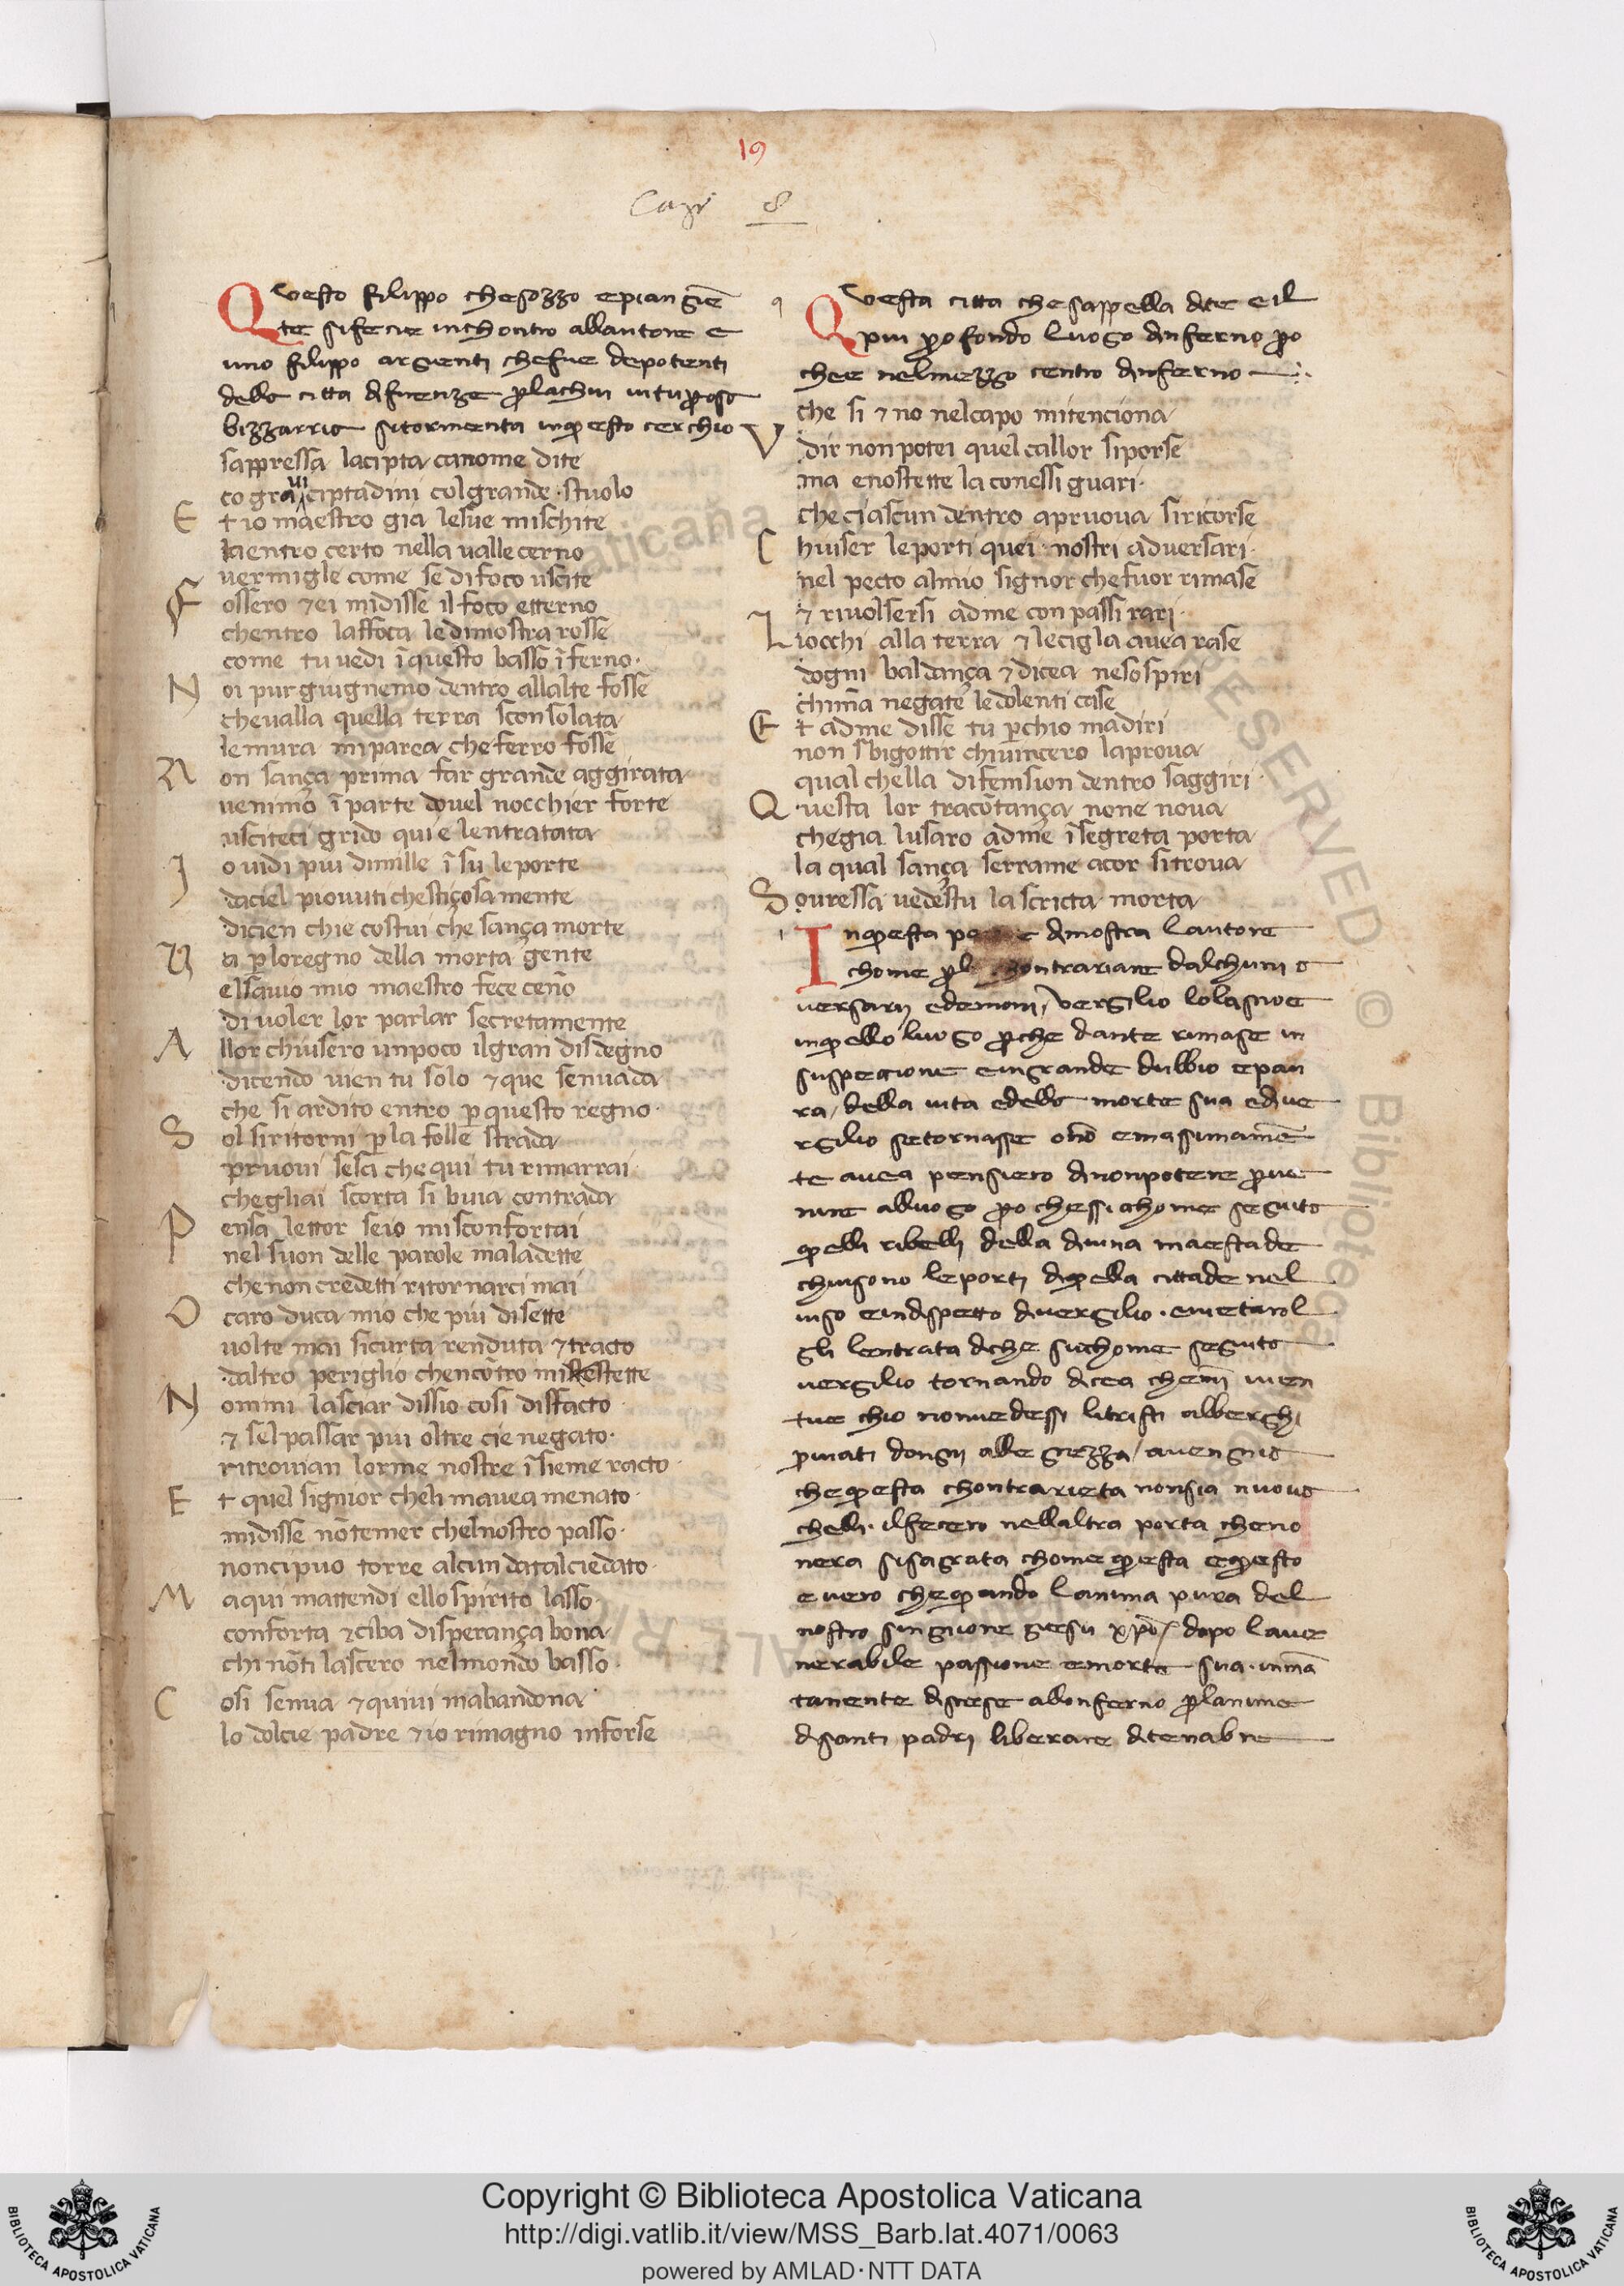 19
Capi 8
Questo filippo chesozzo epiangiē
te sifecue inchontro allautore e
uno filippo argienti chefue depotienti
dello citta difirenze plachui uitupoſo
bizzarrio sitormenta inqesto cerchio
sappressa lacipta canome dite
co graui ciptadini colgrande stuolo
E t io maestro gia lesue mischite
laentro certo nella valle cerno
vermigle come se di foco uscite
F ossero ⁊ei midisse il foco etterno
chentro laffoca ledimostra rosse
come tu vedi ī questo basso īferno·
N oi pur giugnemo dentro allalte fosse
chevalla quella terra sconsolata
lemura miparea cheferro fosse
N on sança prima far grande aggirata
venimo ī parte dovel nocchier forte
usciteci grido qui e lentratata
I o vidi piu dimille ī su leporte
daciel piovuti chestiçosamente
dicien chie costui che sança morte
V a ploregno della morta gente
elsavio mio maestro fece ceño
di voler lor parlar secretamente
A llor chiusero unpoco ilgran disdegno
dicendo vien tu solo ⁊que senvada
che si ardito entro p questo regno·
S ol siritorni p la folle strada
pruovi sesa chequi tu rimarrai
chegliai scorta si buia contrada
P ensa lettor seio misconfortai
nel suon delle parole maladette
chenon credetti ritornarci mai
O caro duca mio che piu disette
volte mai sicurta renduta ⁊tracto
daltro periglio chencōtro mistestette
N ommi lasciar dissio cosi disfacto
⁊ selpassar piu oltre cie negato·
ritrovian lorme nostre īsieme racto
E t quel signior cheli mavea menato
midisse nōtemer chelnostro passo·
noncipuo torre alcun datalciedato
M aqui mattendi ello spirito lasso
conforta ⁊ciba disperança bona
chi nōti lascero nelmondo basso
C osi senva ⁊quivi mabandona
lo dolcie padre ⁊io rimagno inforse
Questa citta chesappella dite eil
piu profondo luogo dinferno po
chee nelmezzo centro dinferno
che si ⁊ no nelcapo mitenciona
V dir non potei quel callor siporse
ma enostette la conessi guari·
che ciascun dentro apruova siricorse
C hiuser leporti quei nostri adversari
nel pecto almio signor chefuor rimase
⁊ rivolsersi adme con passi rari
L iocchi alla terra ⁊ lecigla avea rase
dogni baldança ⁊ dicea nesospiri
chima negate ledolenti case
E t adme disse tu pchio madiri
non sbigottir chivincero laprova
qual chella difension dentro saggiri
Q uesta lor tracotança none nova
chegia lusaro adme ī segreta porta
la qual sança serrame acor sitrova
S ovressa vedestu la scricta morta
Inqesta dimostra lautore
chome pl chontrariare dalchuni
versarij edemoni, vergilio lolascioe
inqello luogo pche dante rimase in
suspeccione eingrande dubbio epau
ra, della vita edello morte sua edive
rgilio setornasse onō emassimamē
te avea pensiero dinonpotere pve
nire alluogo po chessi chome seguito
qelli ribelli della divina maestade
chiusono leporti diqella cittade nel
viso eindispetto divergilio·evietarol
gli lentrata diche sichome seguito
vergilio tornando dicea chemi vien
tue chio nonvedessi litristi alberghi
privati dongni allegrezza, avengnio
cheqesta chontrarieta nonsia nuovo
chelli·ilfecero nellaltra porta cheno
nera sisagrata chome qesta eqesto
e vero cheqando lanima pura del
nostro singniore giesu xpō, dopo lave
nerabile passione emorte sua·inmā
tanente discese allonferno planime
disanti padri liberare ditenabre
Copyright © Biblioteca Apostolica Vaticana
http://digi.vatlib.it/view/MSS_Barb.lat.4071/0063
powered by AMLAD·NTT DATA
BIBLIOTECA APOSTOLICA VATICANA
BIBLIOTECA APOSTOLICA VATICANA